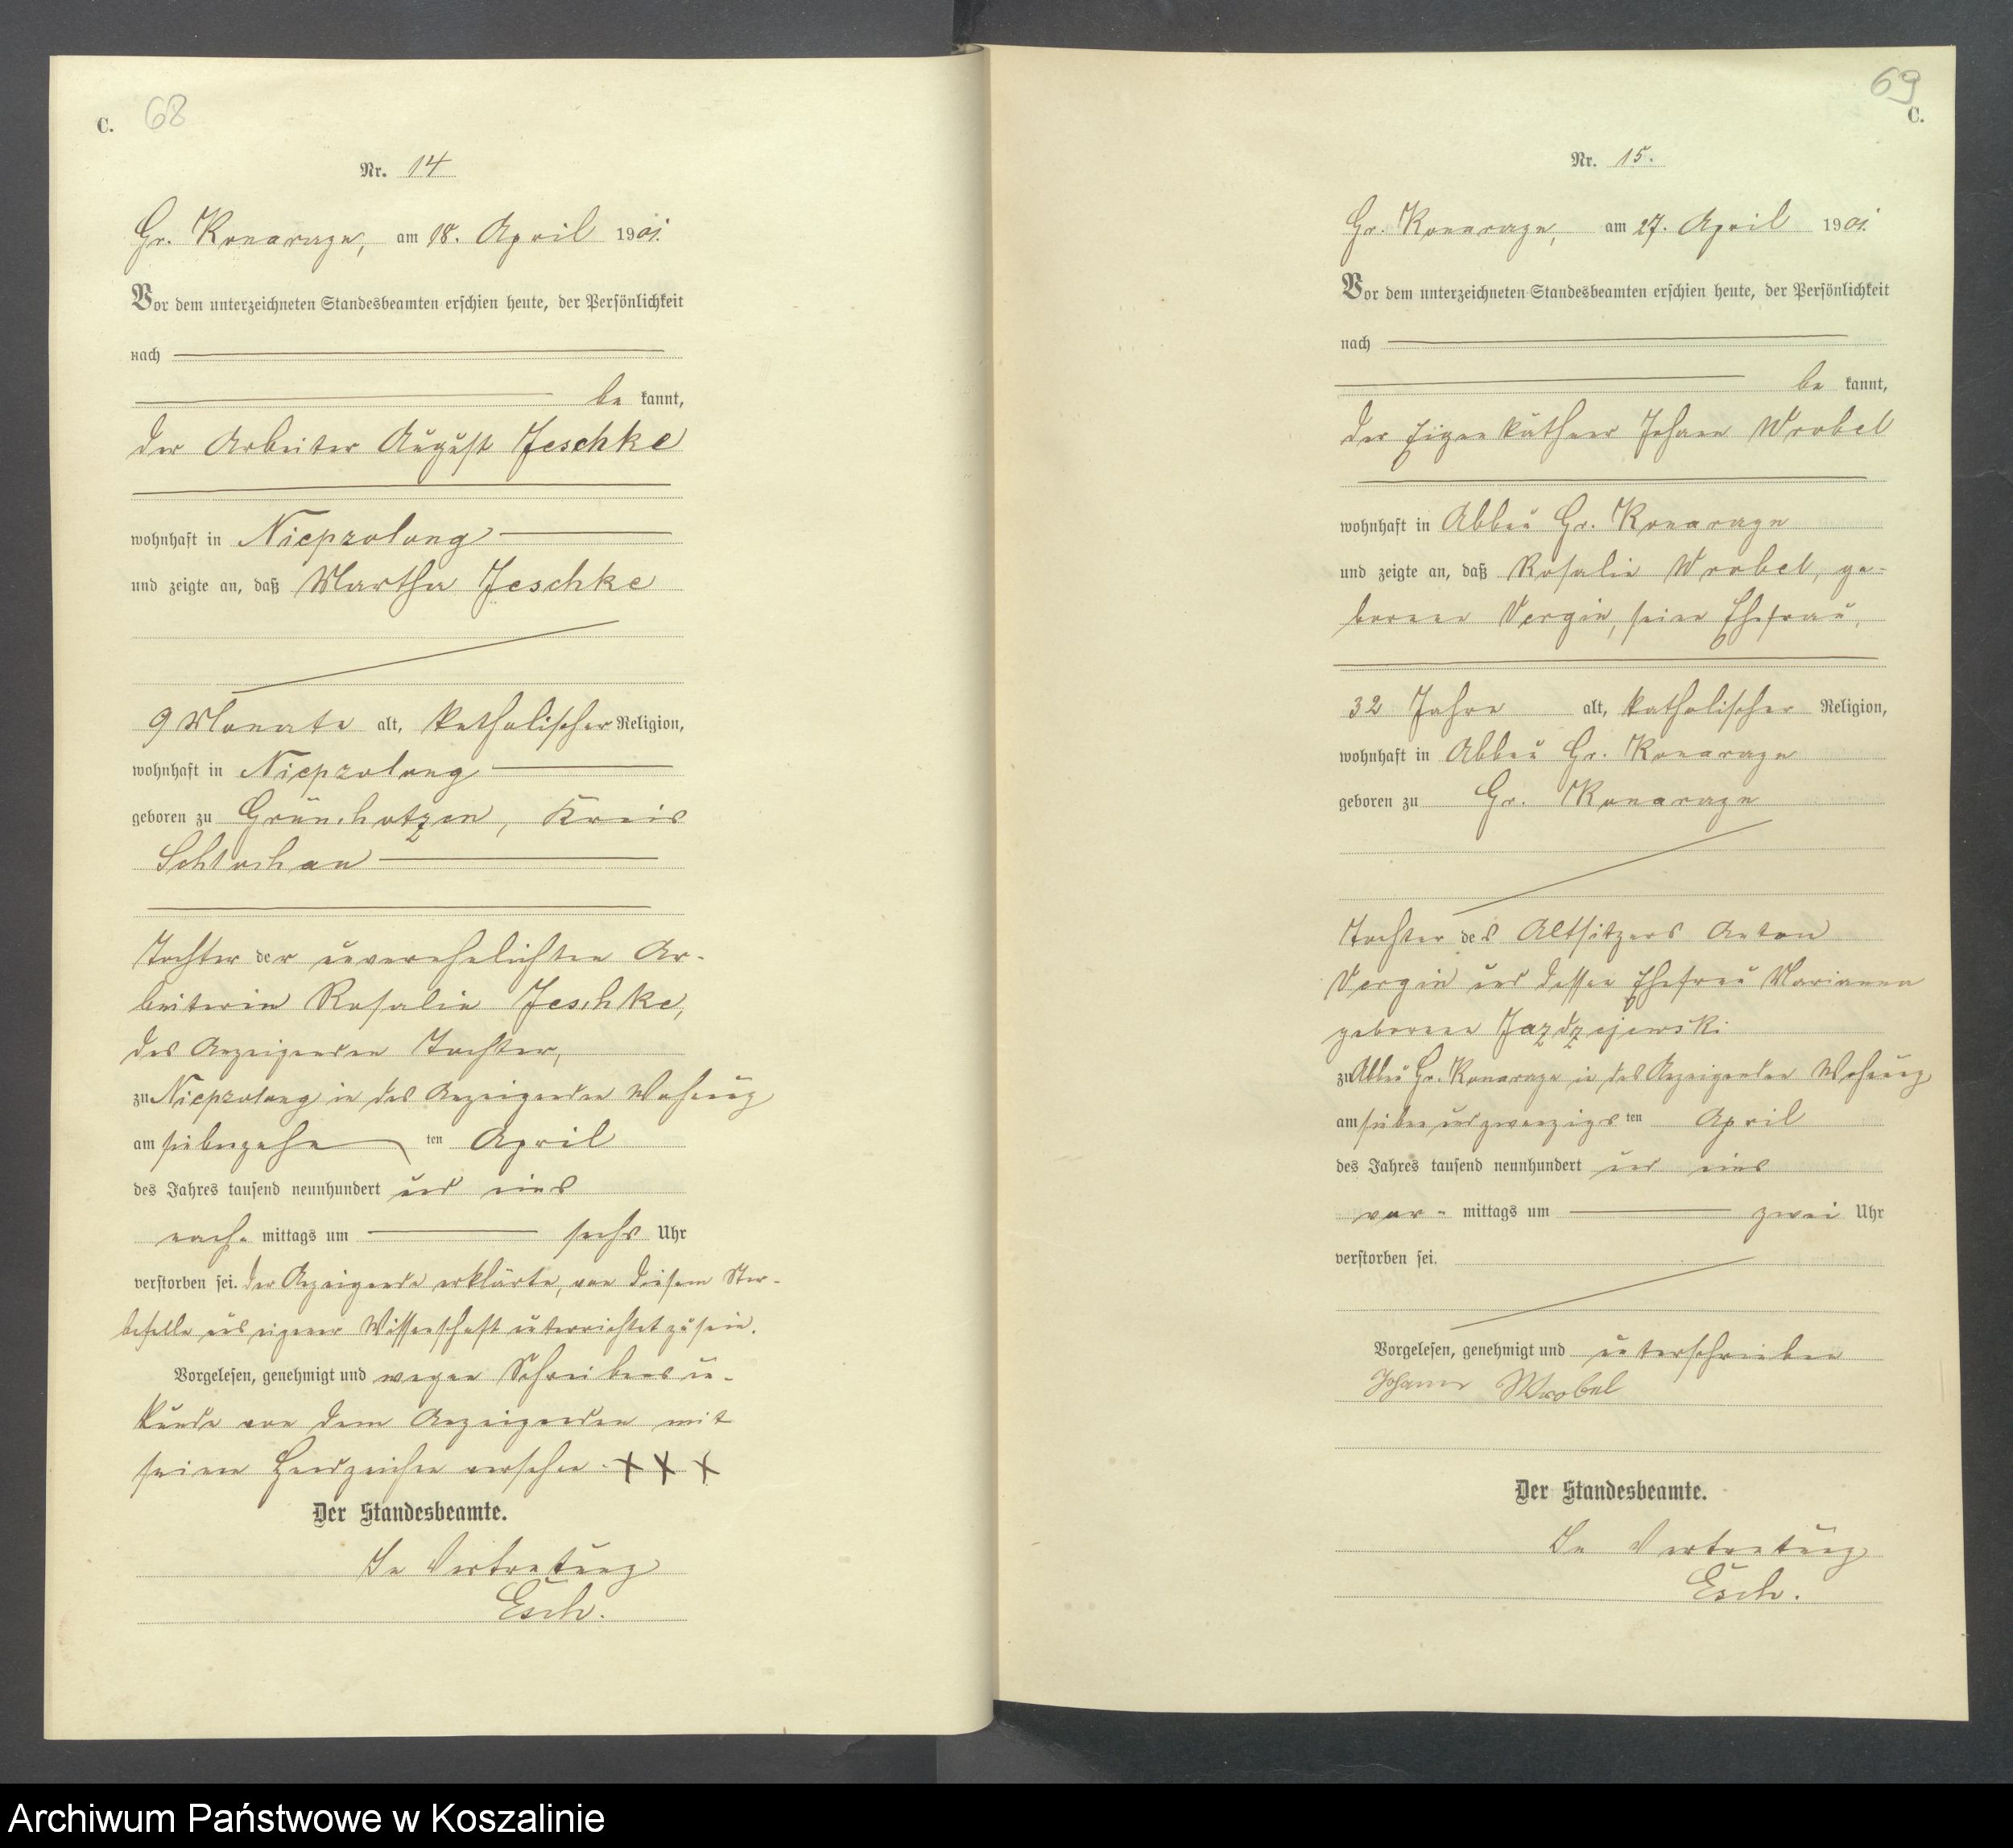 C. 68
Nr. 14
Gr. Konarzyn, am 18. April 1901.
Vor dem unterzeichneten Standesbeamten erschien heute, der Persönlichkeit
nach
be kannt,
der Arbeiter August Jeschke
wohnhaft in Niepzolong
und zeigte an, daß Martha Jeschke
9 Monate alt, katholischer Religion,
wohnhaft in Niepzolong
geboren zu Grünchotzen, Kreis
Schlochau
Tochter der unverehelichten Ar-
beiterin Rosalie Jeschke,
des Anzeigenden Tochter,
zu Niepzolong in des Anzeigenden Wohnung
am siebenzehn ten April
des Jahres tausend neunhundert und eins
nach- mittags um sechs Uhr
verstorben sei. Der Anzeigende erklärte, von diesem Ster-
befalle aus eigener Wissenschaft unterrichtet zu sein.
Vorgelesen, genehmigt und wegen Schreibensun-
kunde von dem Anzeigenden mit
seinem Handzeichen versehen. + + +
Der Standesbeamte.
In Vertretung
Esch.
69
C.
Nr. 15.
Gr. Konarzyn, am 27. April 1901.
Vor dem unterzeichneten Standesbeamten erschien heute, der Persönlichkeit
nach
be kannt,
der Eigenkäthner Johann Wrobel
wohnhaft in Abbau Gr. Konarzyn
und zeigte an, daß Rosalie Wrobel, ge-
borene Vergin, seine Ehefrau,
32 Jahre alt, katholischer Religion,
wohnhaft in Abbau Gr. Konarzyn
geboren zu Gr. Konarzyn
Tochter des Altsitzers Anton
Vergin und dessen Ehefrau Marianna
geborene Jazdzejewski
zu Abbau Gr. Konarzyn in des Anzeigenden Wohnung
am siebenundzwanzigs ten April
des Jahres tausend neunhundert und eins
vor- mittags um zwei Uhr
verstorben sei.
Vorgelesen, genehmigt und unterschrieben
Johann Wrobel
Der Standesbeamte.
In Vertretung
Esch.
Archiwum Państwowe w Koszalinie